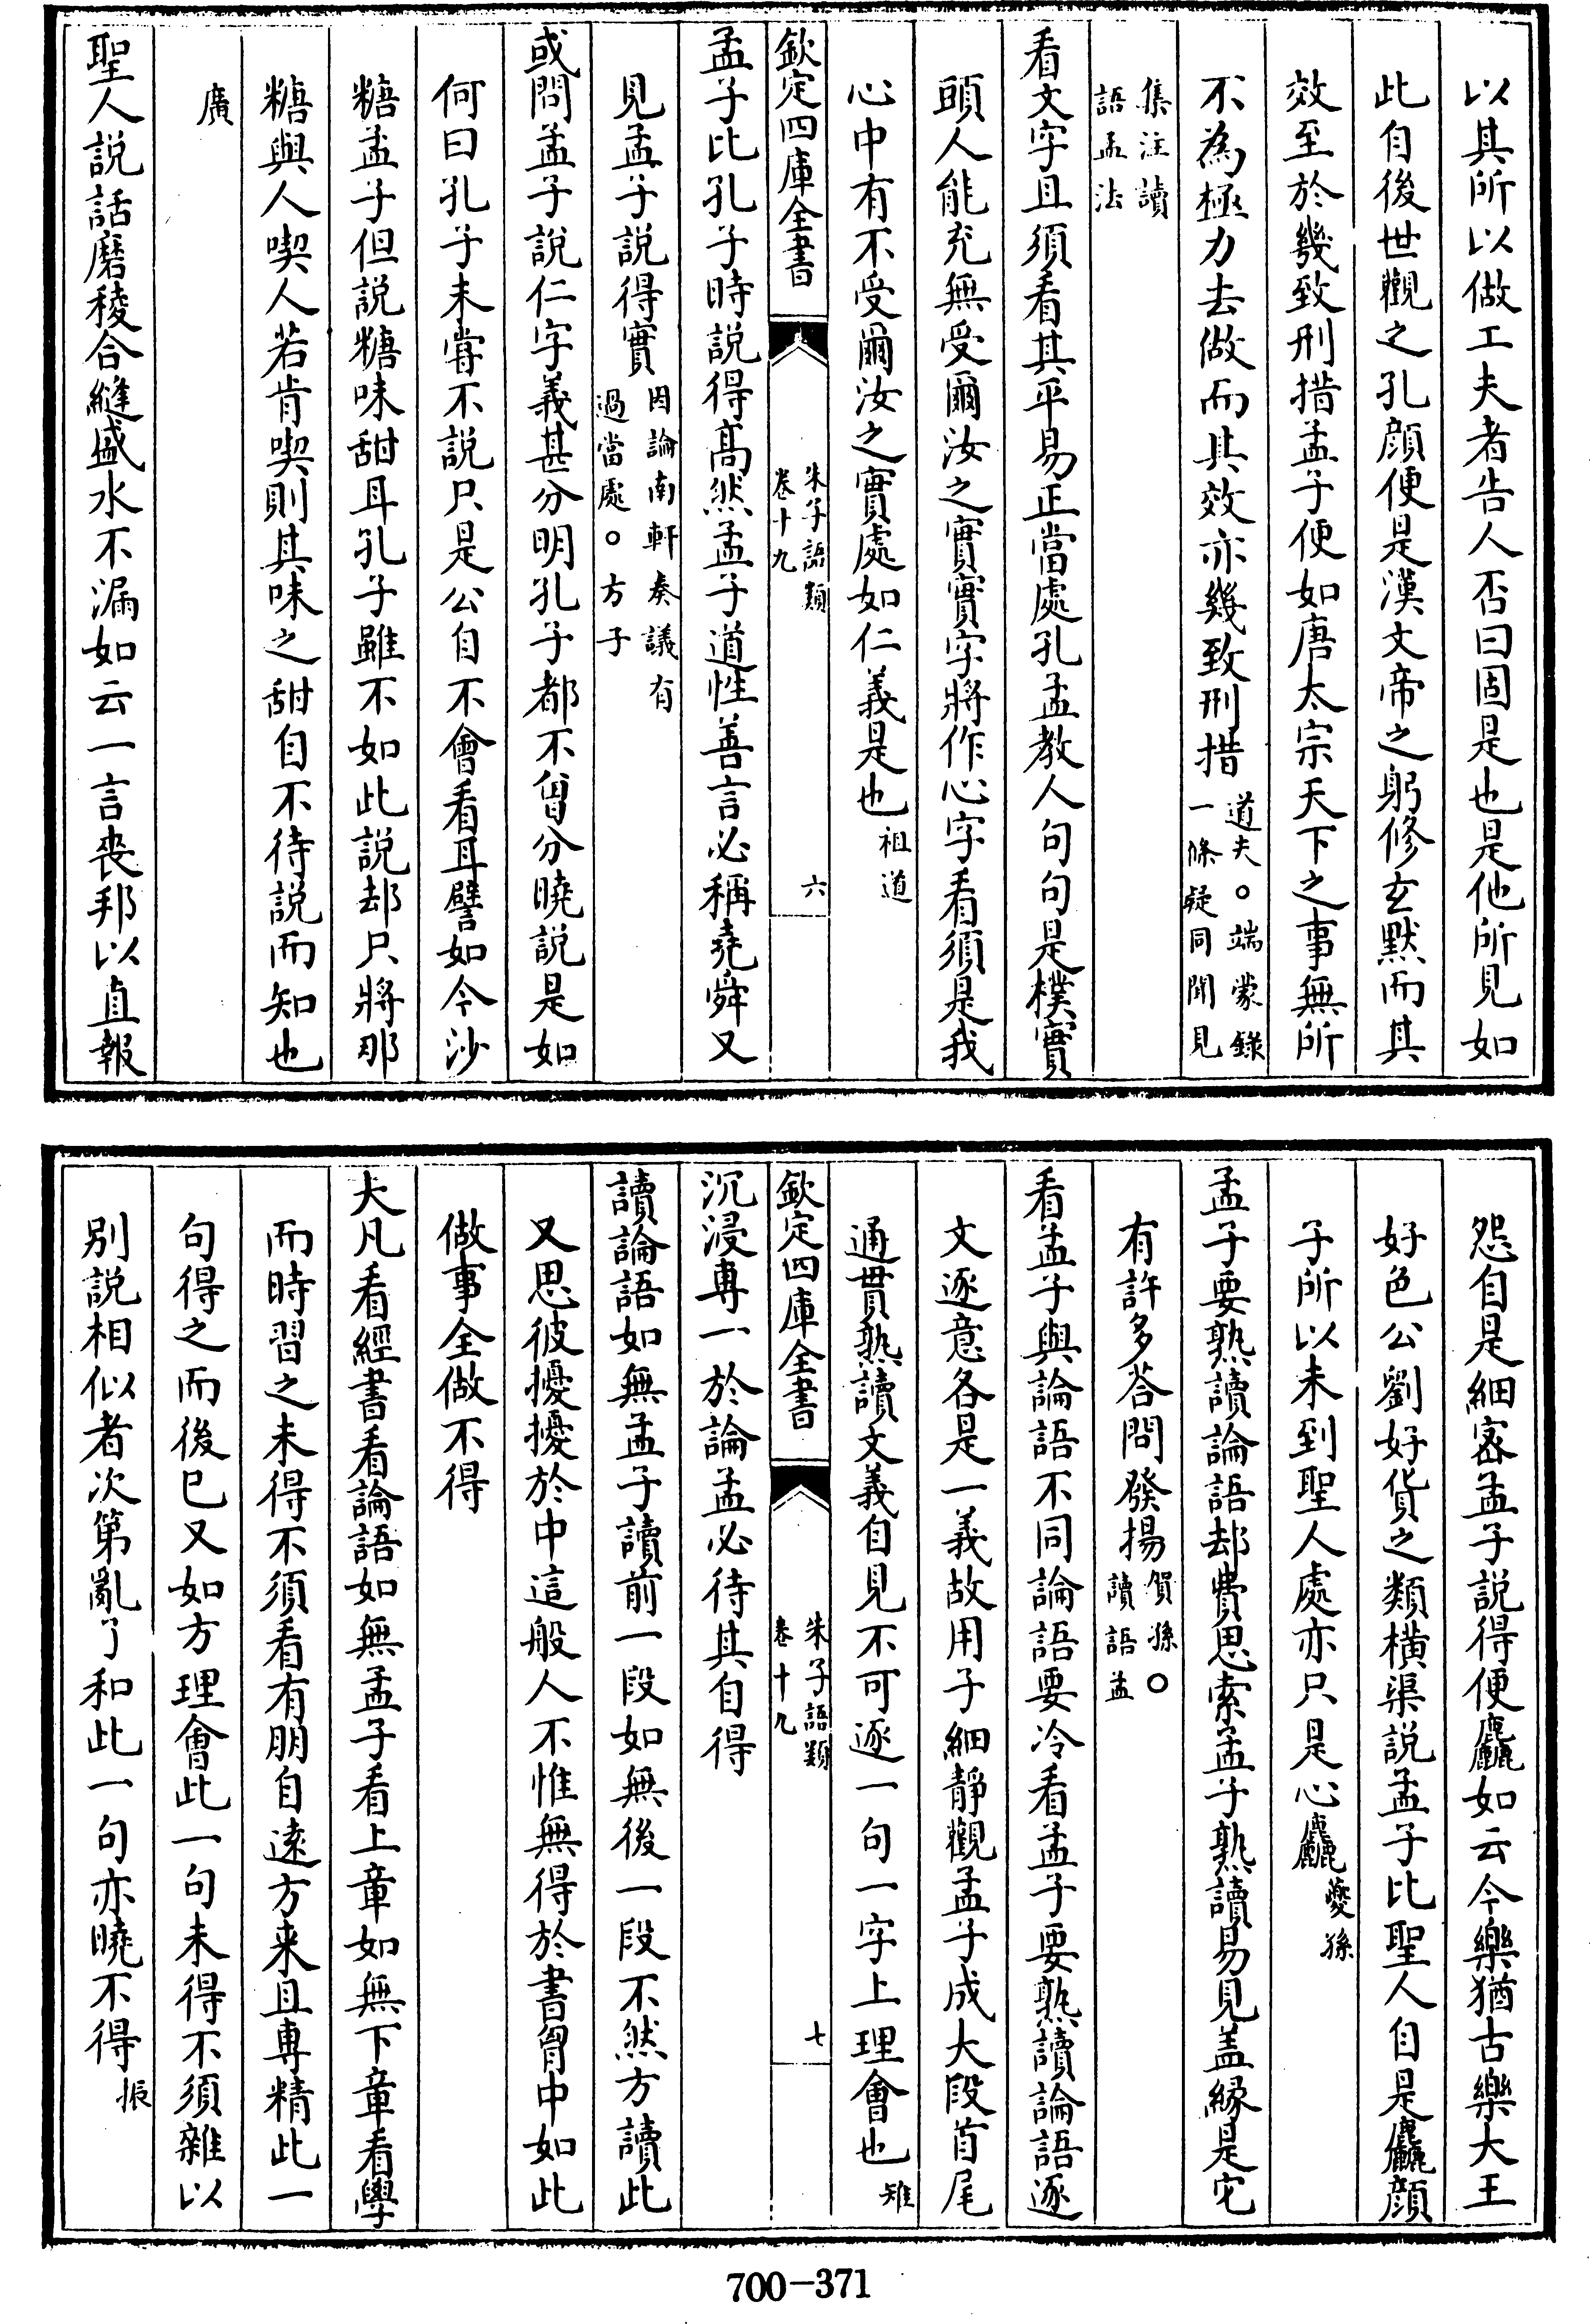 以其所以做工夫者告人否曰固是也是他所見如
此自後世觀之孔顔便是漢文帝之躬修玄默而其
效至於幾致刑措孟子便如唐太宗天下之事無所
不為極力去做而其效亦幾致刑措道夫○端蒙錄
一條疑同聞見
集注讀
語孟法
看文字且須看其平易正當處孔孟教人句句是樸實
頭人能充無受爾汝之實實字將作心字看須是我
心中有不受爾汝之實處如仁義是也祖道
欽定四庫全書
朱子語類
卷十九
六
孟子比孔子時說得髙然孟子道性善言必稱堯舜又
見孟子說得實因論南軒奏議有
過當處○方子
或問孟子說仁字義甚分明孔子都不曾分曉說是如
何曰孔子未嘗不說只是公自不會看耳譬如今沙
糖孟子但說糖味甜耳孔子雖不如此說却只將那
糖與人喫人若肯喫則其味之甜自不待說而知也
廣
聖人說話磨稜合縫盛水不漏如云一言喪邦以直報
怨自是細密孟子說得便麤如云今樂猶古樂大王
好色公劉好貨之類横渠說孟子比聖人自是麤顔
子所以未到聖人處亦只是心麤夔孫
孟子要熟讀論語却費思索孟子熟讀易見盖縁是它
有許多荅問發揚賀孫○
讀語孟
看孟子與論語不同論語要冷看孟子要熟讀論語逐
文逐意各是一義故用子細靜觀孟子成大段首尾
通貫熟讀文義自見不可逐一句一字上理會也雉
欽定四庫全書
朱子語類
卷十九
七
沉浸専一於論孟必待其自得
讀論語如無孟子讀前一段如無後一段不然方讀此
又思彼擾擾於中這般人不惟無得於書胷中如此
做事全做不得
大凡看經書看論語如無孟子看上章如無下章看學
而時習之未得不須看有朋自逺方来且專精此一
句得之而後已又如方理會此一句未得不須雜以
别說相似者次第亂了和此一句亦曉不得振
700-371